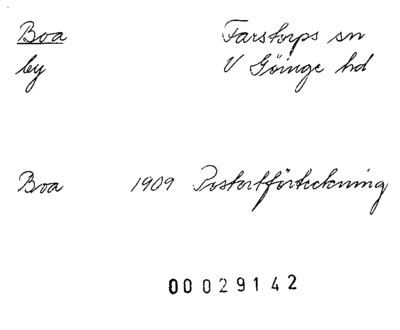 Boa Farstorps sn
by V Göinge hd
Boa 1909 Postortförteckning
00029142